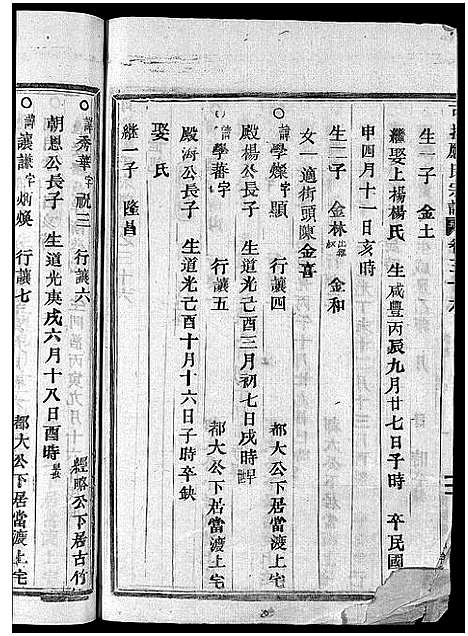 生一子 金土
繼娶上楊楊氏 生咸豐丙辰九月廿七日子時 卒民國
申四月十一日亥時
生二子 金林 金和
女一適街頭陳金喜
諱學燦字顯 行讓四 都大公下居當渡上宅
殿楊公長子 生道光己酉三月初七日戌時
諱學蕃字 行讓五 都大公下居當渡上宅
殿海公長子 生道光己酉十月十六日子時卒缺
娶氏
繼一子 隆昌
諱秀華字祝三 行讓六 經略公下居古竹
朝恩公長子 生道光庚戌六月十八日酉時
諱讓謙字炳煥 行讓七 都大公下居當渡上宅